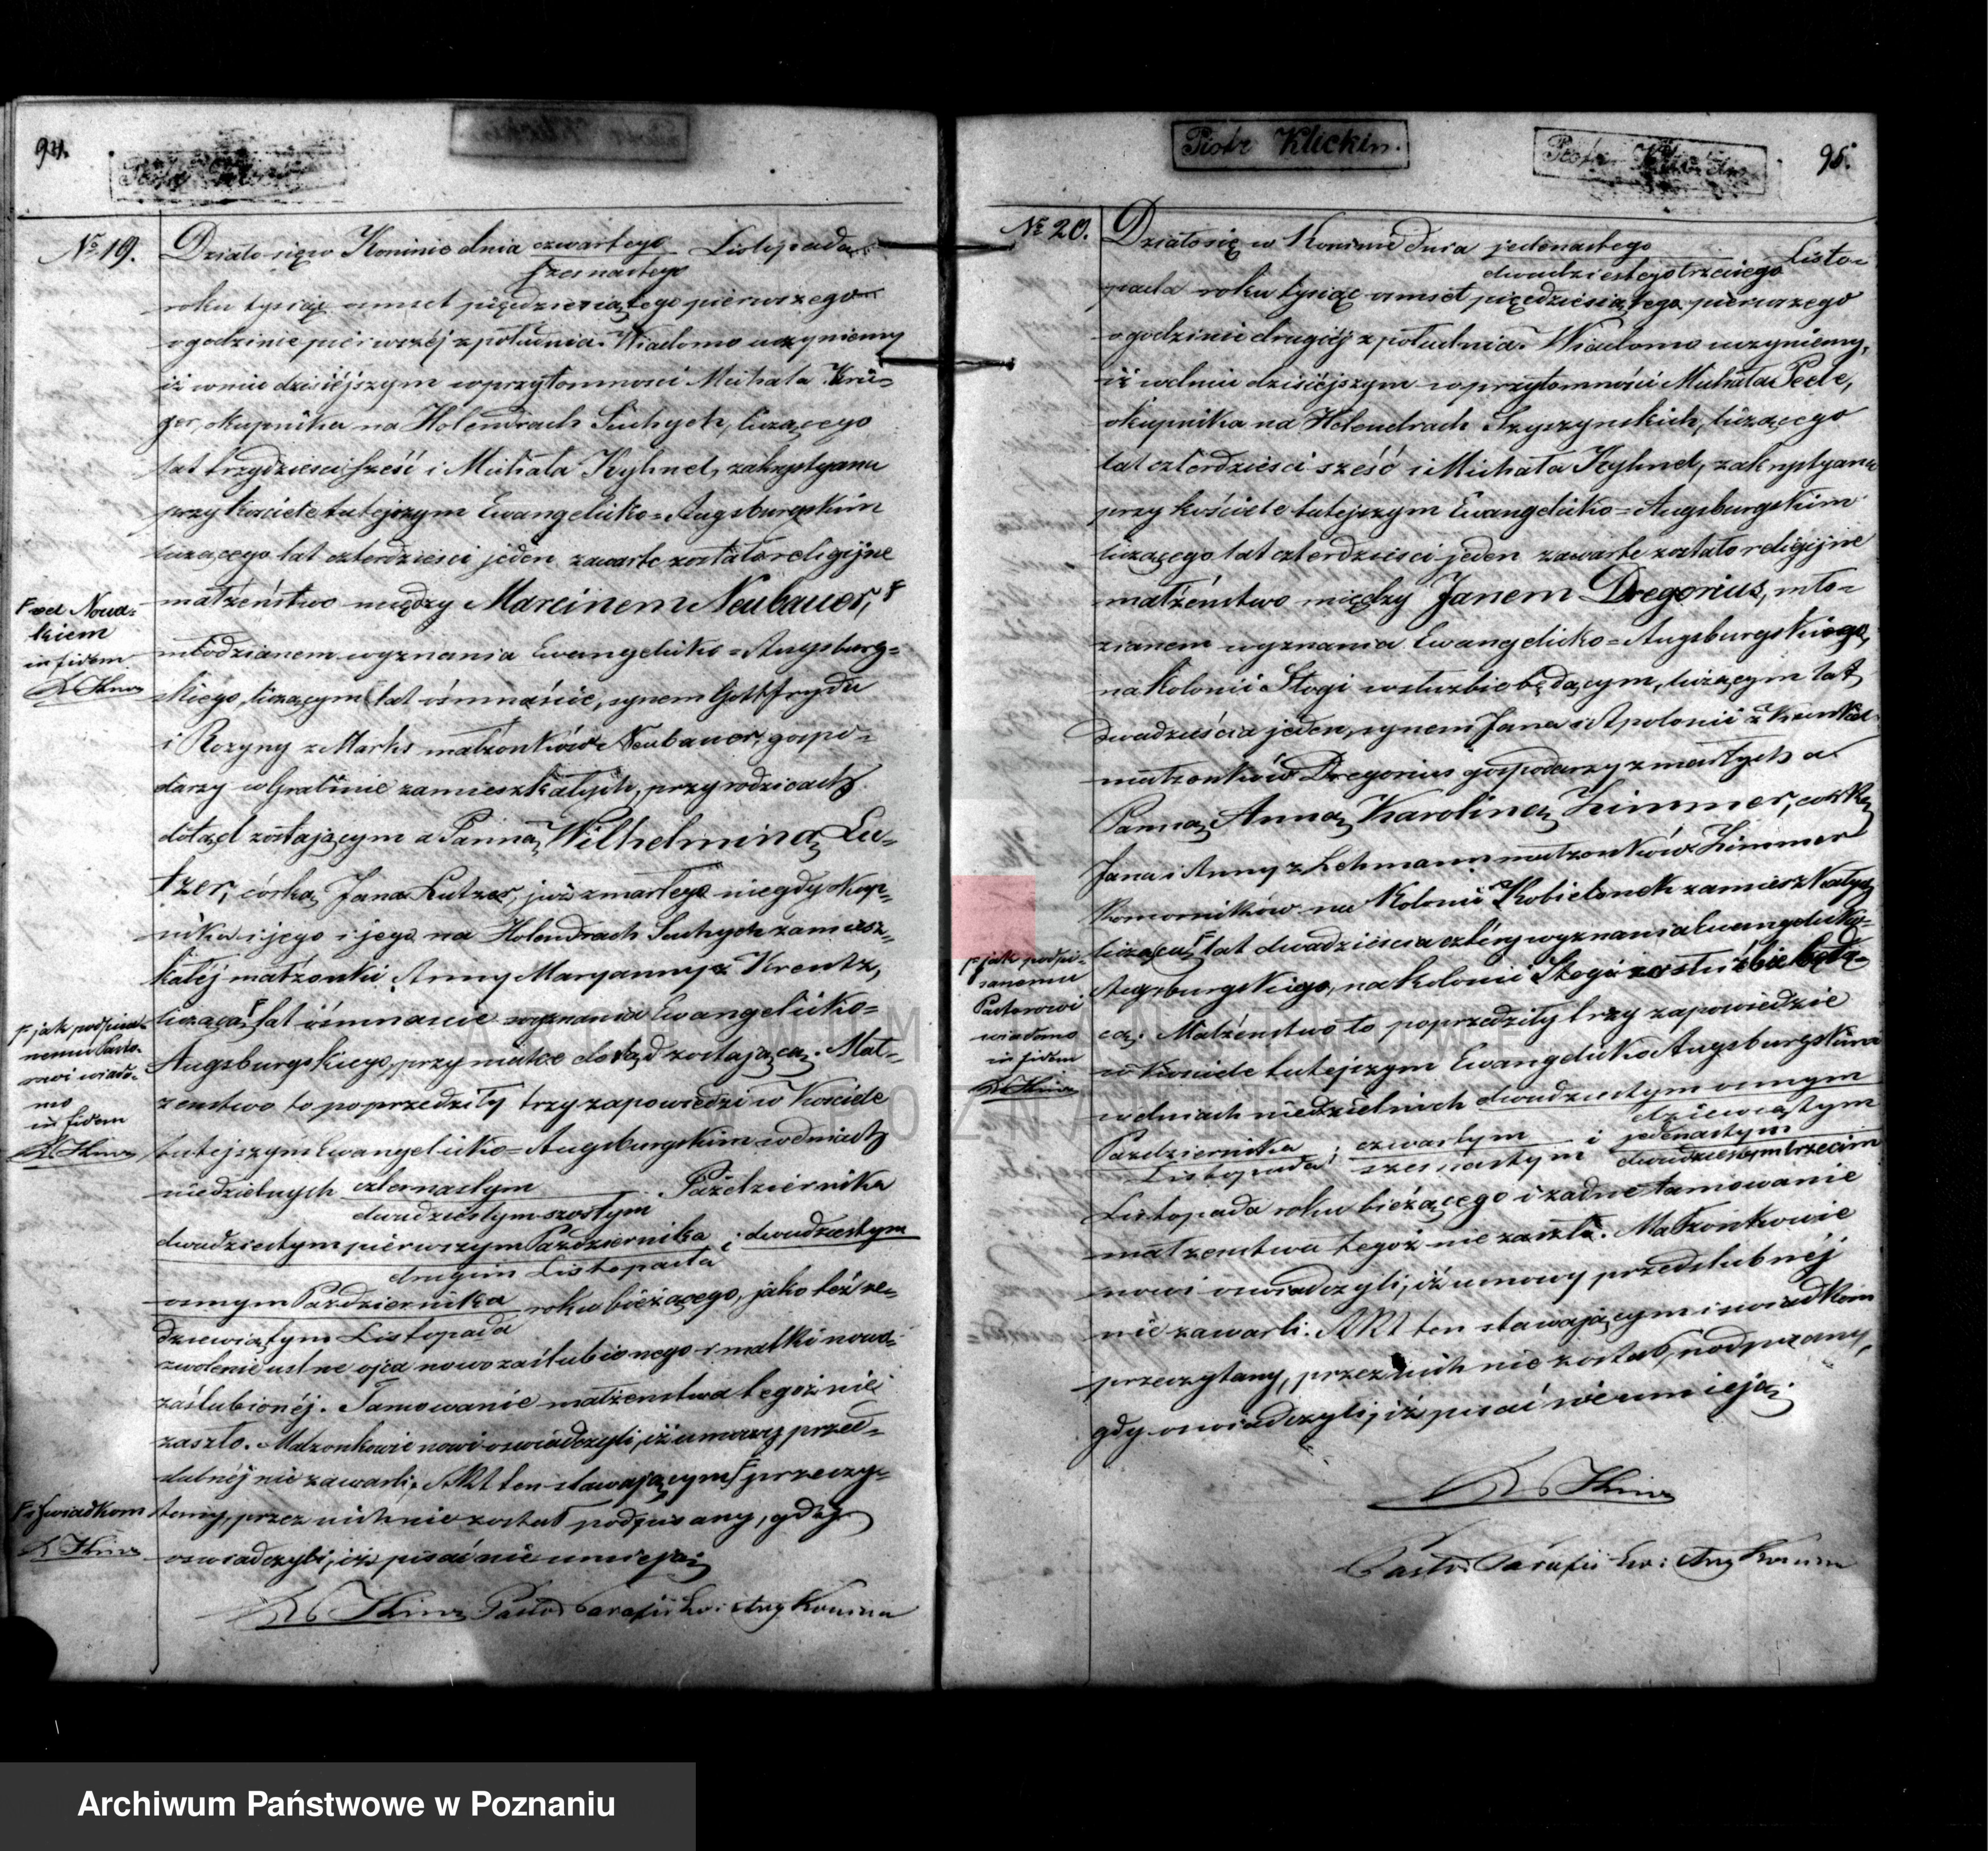 94.
Nº 19.
Działo się w Koninie dnia czwartego Listopada
szesnastego
roku tysiąc ośmset pięćdziesiątego pierwszego
o godzinie pierwszéj z południa. Wiadomo uczyniemy
iż w dniu dzisiéjszym w przytomności Michała Krü=
ger, okupnika na Holendrach Suchych, liczącego
lat trzydzieści sześć i Michała Kyhnel, zakrystyana
przy kościele tutejszym Ewangelicko=Augsburgskim
liczącego lat czterdzieści jeden zawarte zostało religijne
małżeństwo między Marcinem Neubauer,
młodzianem wyznania Ewangelicko=Augsburg=
skiego, liczącym lat ośmnaście, synem Gottfryda
i Rozyny z Marks małżonków Neubauer, gospo=
darzy w Grabinie zamieszkałych, przy rodzicach
dotąd zostającym a Panną Wilhelminą Lu=
tzer, córką Jana Lutzer, już zmarłego niegdy okup=
nika i jego i jego na Holendrach Suchych zamiesz=
kałéj małżonki Anny Maryanny z Krentz,
liczącą lat ośmnaście wyznania Ewangelicko=
Augsburgskiego, przy matce dotąd zostającą. Mał=
żenstwo to poprzedziły trzy zapowiedzi w Kościele
tutejszym Ewangelicko=Augsburgskim w dniach
niedzielnych czternastym Października
dwudziestym szóstym
dwudziestym pierwszym Października i dwudziestym
drugim Listopada
osmym Października roku bieżącego, jako też ze=
dziewiątym Listopada
zwolenie ustne ojca nowozaślubionego i matki nowo=
zaślubionéj. Tamowanie małżenstwa tegoż nie
zaszło. Małżonkowie nowi oswiadczyli, iż umowy przed=
slubnéj nie zawarli, Akt ten stawającym przeczy=
tany, przez nich nie został podpisany, gdyż
oswiadczyli, iż pisać nie umieją.
Pastor Parafii Ew: Aug Konina
in fidem
jak podpisa=
nemu Pasto=
rowi wiado=
mo
in fidem
i swiadkom
Piotr Klickin.
95.
Nº 20.
Działo się w Koninie dnia jedenastego Listo=
dwudziestego trzeciego
pada roku tysiąc ośmset pięćdziesiątego pierwszego
o godzinie drugiéj z południa. Wiadomo uczyniemy,
iż w dniu dzisiéjszym w przytomności Michała Pede,
okupnika na Holendrach Szyszynskich, liczącego
lat czterdzieści sześć i Michała Kyhnel, zakrystyana
przy kościele tutejszym Ewangelicko=Augsburgskim
liczącego lat czterdzieści jeden zawarte zostało religijne
małżeństwo między Janem Dregorius, mło=
zianem wyznania Ewangelicko=Augsburgskiego,
na Kolonii Stogi w służbie będącym, liczącym lat
dwadzieścia jeden, synem Jana i Apolonii z
małżonków Dregorius gospodarzy zmarłych a
Panną Anną Karoliną Zimmer, córką
Jana i Anny z Lehmann małżonków Zimmer
Komorników na Kolonii Kobielonek zamieszkałych
liczącą lat dwadzieścia cztéry wyznania Ewangelicko=
Augsburgskiego, na Kolonii Stogi w służbie będą=
cą. Małżenstwo to poprzedziły trzy zapowiedzie
w Kosciele tutejszym Ewangelicko Augsburgskim
w dniach niedzielnich dwudziestym osmym
dziewiątym
Października; czwartym i jedenastym
Listopada; szesnastym dwudziestym trzecim
Listopada roku bieżącego i żadne tamowanie
małżenstwa tegoż nie zaszło. Małżonkowie
nowi oswiadczyli, iż umowy przedslubnéj
nie zawarli. Akt ten stawającym i swiadkom
przeczytany, przez nich nie został, podpisany,
gdy oswiadczyli, iż pisać nie umieją.
Pastor Parafii Ew: Aug Konina
jak podpi=
sanemu
Pastorowi
wiadomo
in fidem
ARCHIWUM PAŃSTWOWE
W POZNANIU
Archiwum Państwowe w Poznaniu